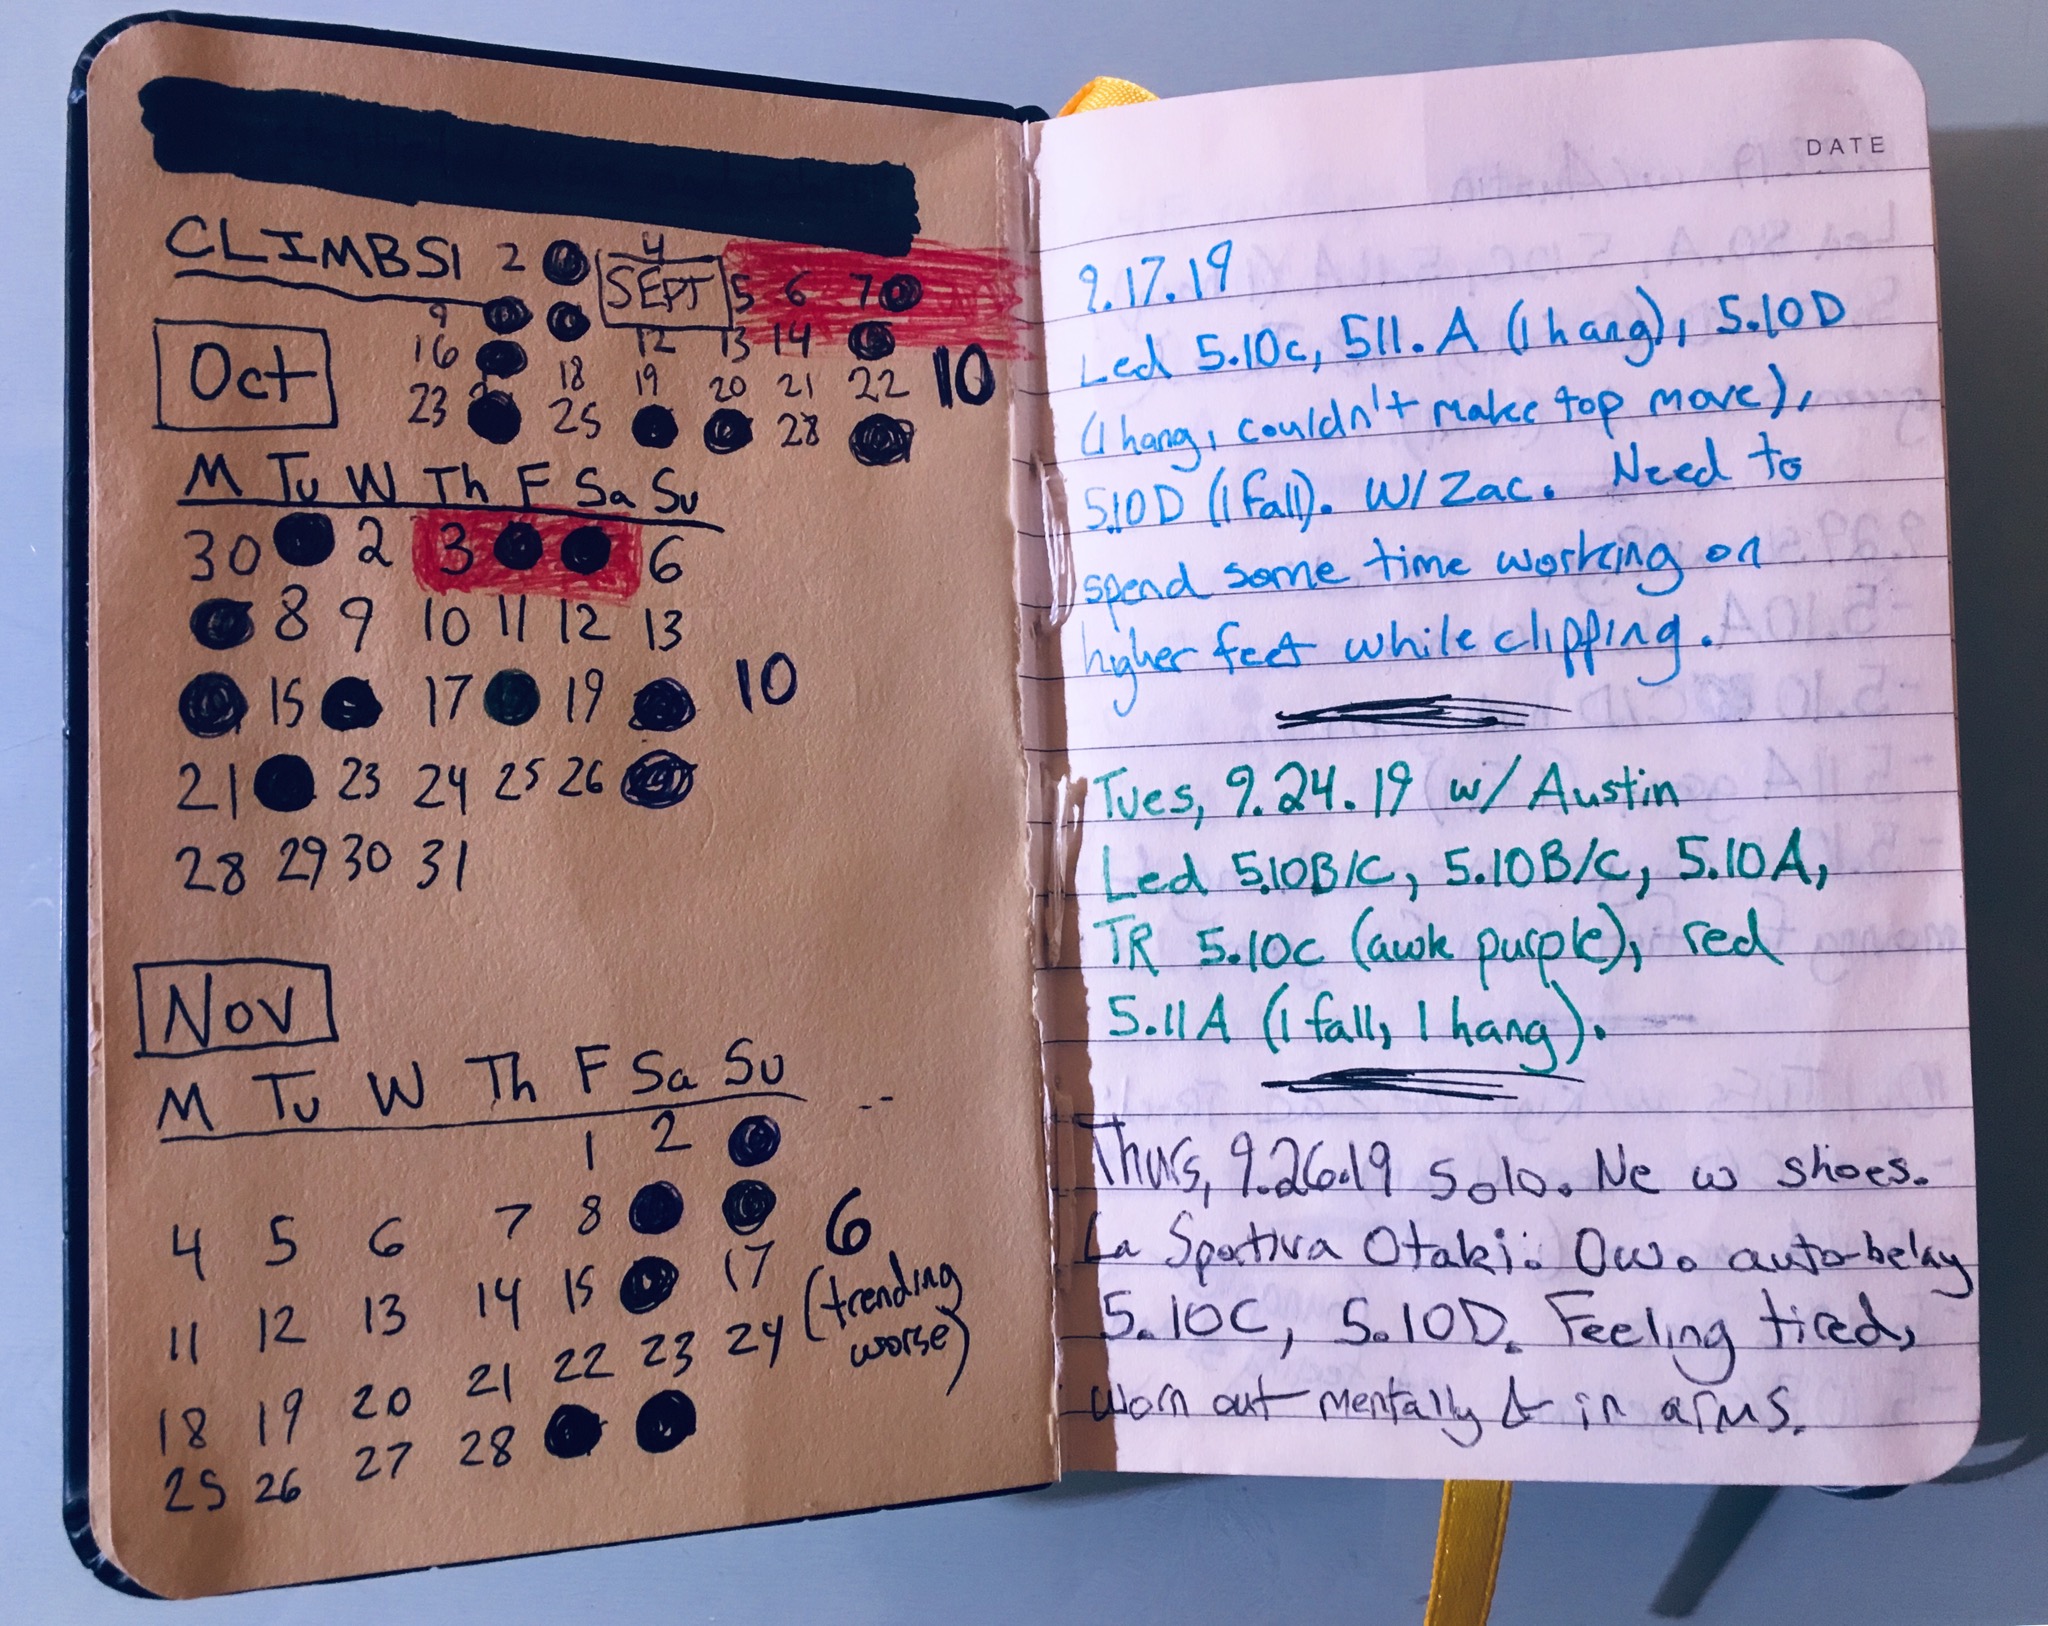 CLIMBS! 2 4
SEPT 5 6 7
9 12 13 14
16 18 19 20 21 22 10
23 25 28
Oct
M Tu W Th F Sa Su
30 2 3 6
8 9 10 11 12 13
15 17 19 10
21 23 24 25 26
28 29 30 31
Nov
M Tu W Th F Sa Su
1 2
4 5 6 7 8 6
11 12 13 14 15 17 (trending
18 19 20 21 22 23 24 worse)
25 26 27 28
DATE
9.17.19
Led 5.10c, 511.A (1 hang), 5.10D
(1 hang, couldn't make top move),
5.10D (1 fall). W/ Zac. Need to
spend some time working on
higher feet while clipping.
Tues, 9.24.19 w/ Austin
Led 5.10B/C, 5.10B/C, 5.10A,
TR 5.10c (awk purple), red
5.11A (1 fall, 1 hang).
Thurs, 9.26.19 Solo. New shoes.
La Sportiva Otaki. Ow. auto-belay
5.10C, 5.10D. Feeling tired,
worn out mentally & in arms.